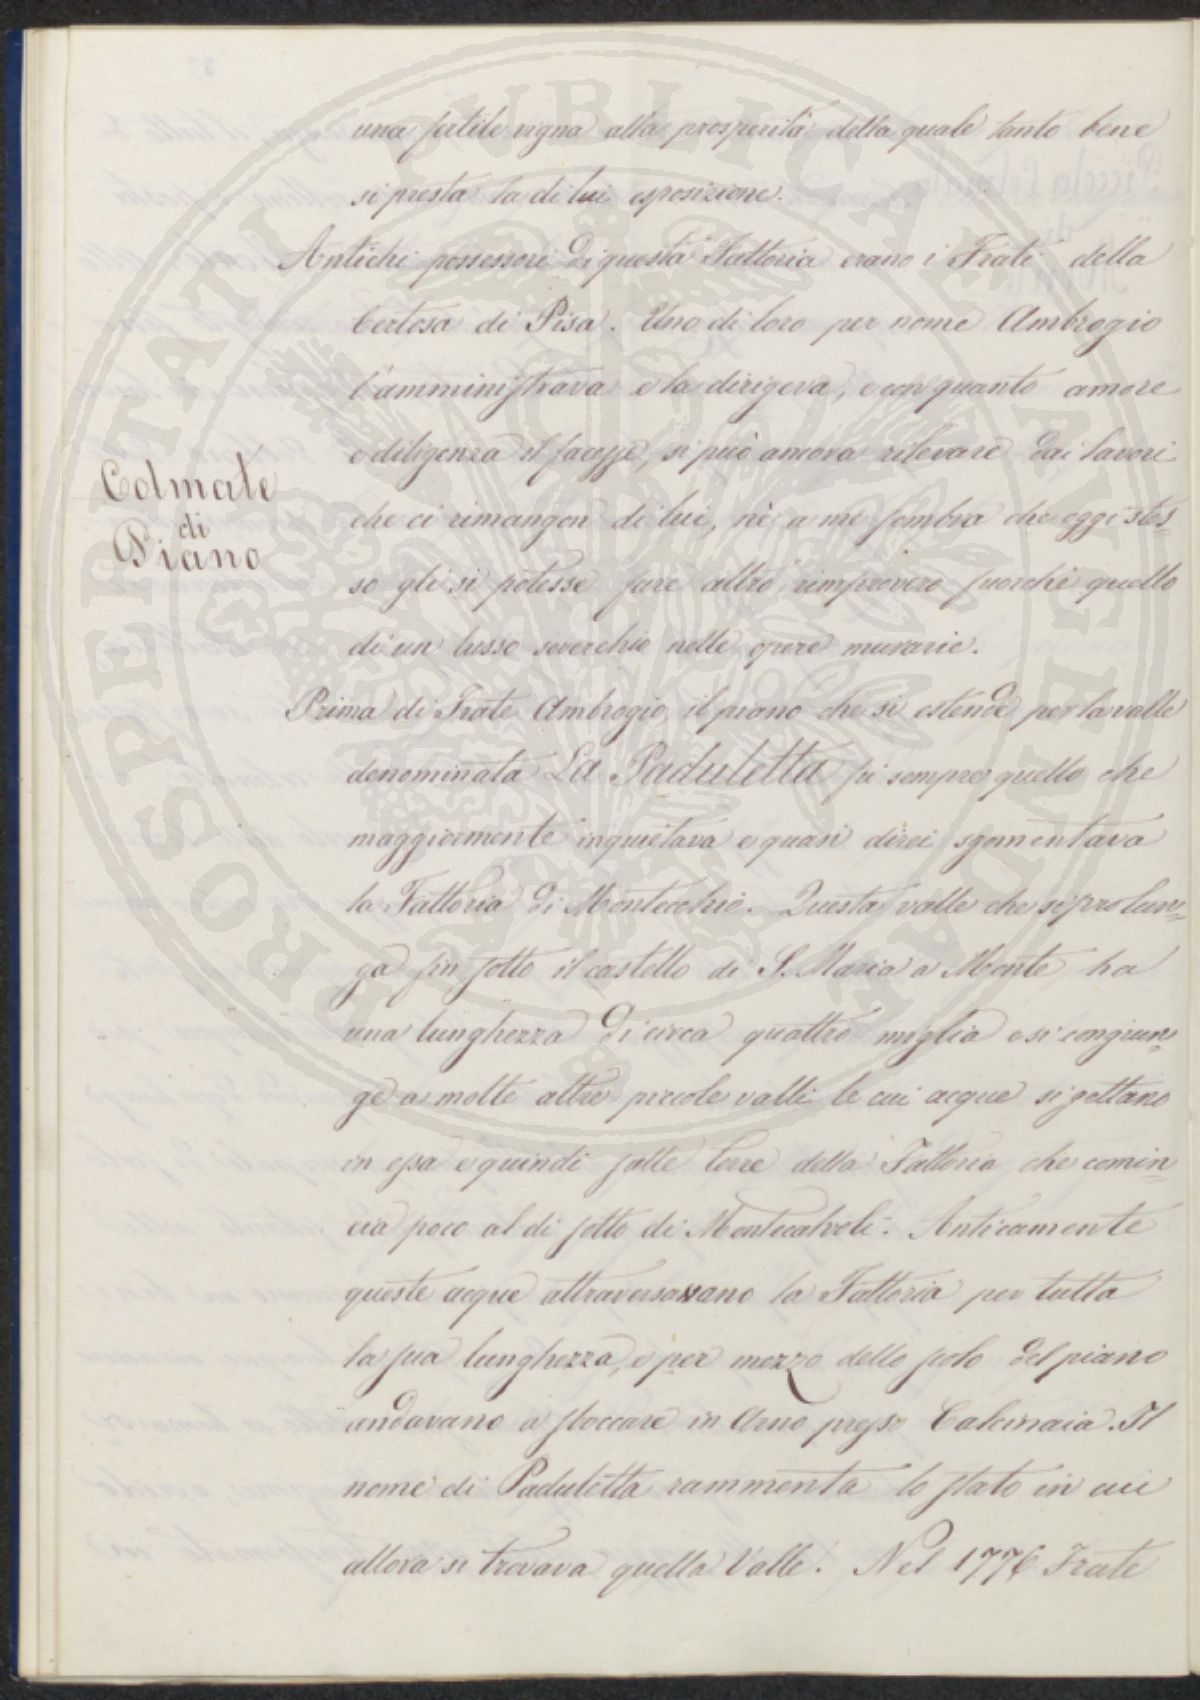 una fertile vigna alla prosperità della quale tanto bene
si presta la di lui esposizione.
Antichi possessori di questa Fattoria erano i Frati della
Certosa di Pisa. Uno di loro per nome Ambrogio
l'amministrava e la dirigeva, e con quanto amore
e diligenza il facesse, si può ancora rilevare dai lavori
Colmate
di
Piano
che ci rimangon di lui, nè a me sembra che oggi stes=
so gli si potesse fare altro rimprovero fuorchè quello
di un lusso soverchio nelle opere murarie.
Prima di Frate Ambrogio il piano che si estende per la valle
denominata La Paduletta fù sempre quello che
maggiormente inquietava e quasi direi sgomentava
la Fattoria di Montecchio. Questa valle che si prolun=
ga fin sotto il castello di S. Maria a Monte ha
una lunghezza di circa quattro miglia e si congiun=
ge a molte altre piccole valli le cui acque si gettano
in essa e quindi sulle terre della Fattoria che comin=
cia poco al di sotto di Montecalvoli. Anticamente
queste acque attraversavano la Fattoria per tutta
la sua lunghezza, e per mezzo dello scolo del piano
andavano a sboccare in Arno presso Calcinaia. Il
nome di Paduletta rammenta lo stato in cui
allora si trovava quella Valle. Nel 1776 Frate
PROSPERITATI PUBLICAE AUGENDAE